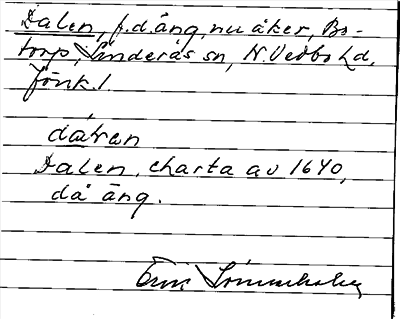 Dalen, f.d. äng, nu åker, Bo-
torp, Linderås sn, N. Vedbo hd,
Jönk. l
dátan
Dalen, charta av 1640,
då äng.
Erik